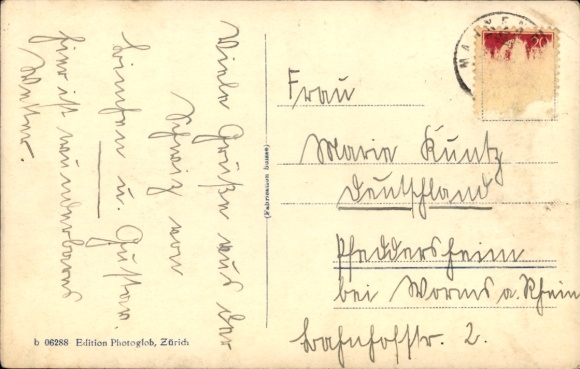 Viele Grüße aus der
Schweiz von
Linchen u. Gustav.
hier ist wunderbares
Wetter.
(Fabrication Suisse)
b 06288 Edition Photoglob, Zürich
20
Frau
Marie Kuntz
Deutschland
Pfeddersheim
bei Worms a. Rhein
Bahnhofstr. 2.